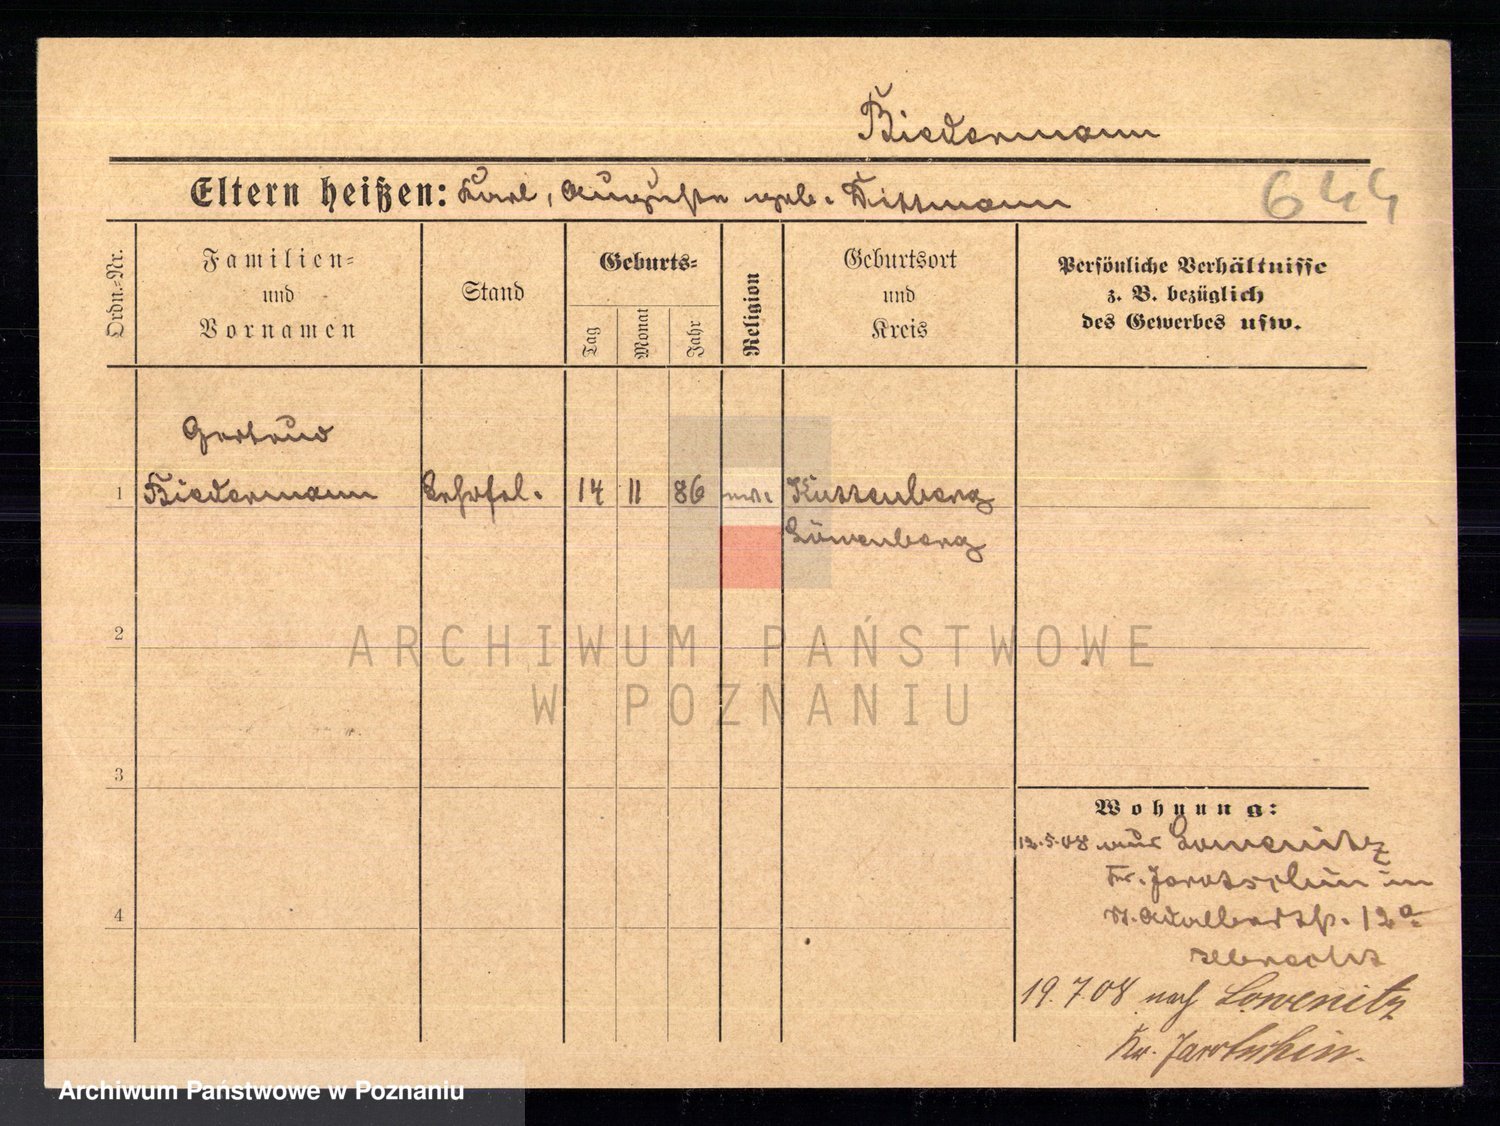 Biedermann
Eltern heißen: Karl, Auguste geb. Dittmann
644
Ordn.-Nr.
Familien-
und
Vornamen
Stand
Geburts-
Tag
Monat
Jahr
Religion
Geburtsort
und
Kreis
Persönliche Verhältnisse
z. B. bezüglich
des Gewerbes usw.
Gertrud
1 Biedermann 14 11 86 ev. Kunzenberg
Löwenberg
2
3
4
Wohnung:
12.5.08 aus Lowenitz
Kr. Jarotschin in
St. Adalbertstr. 12a
19.7.08 nach Lowenitz
Kr. Jarotschin.
ARCHIWUM PAŃSTWOWE
W POZNANIU
Archiwum Państwowe w Poznaniu